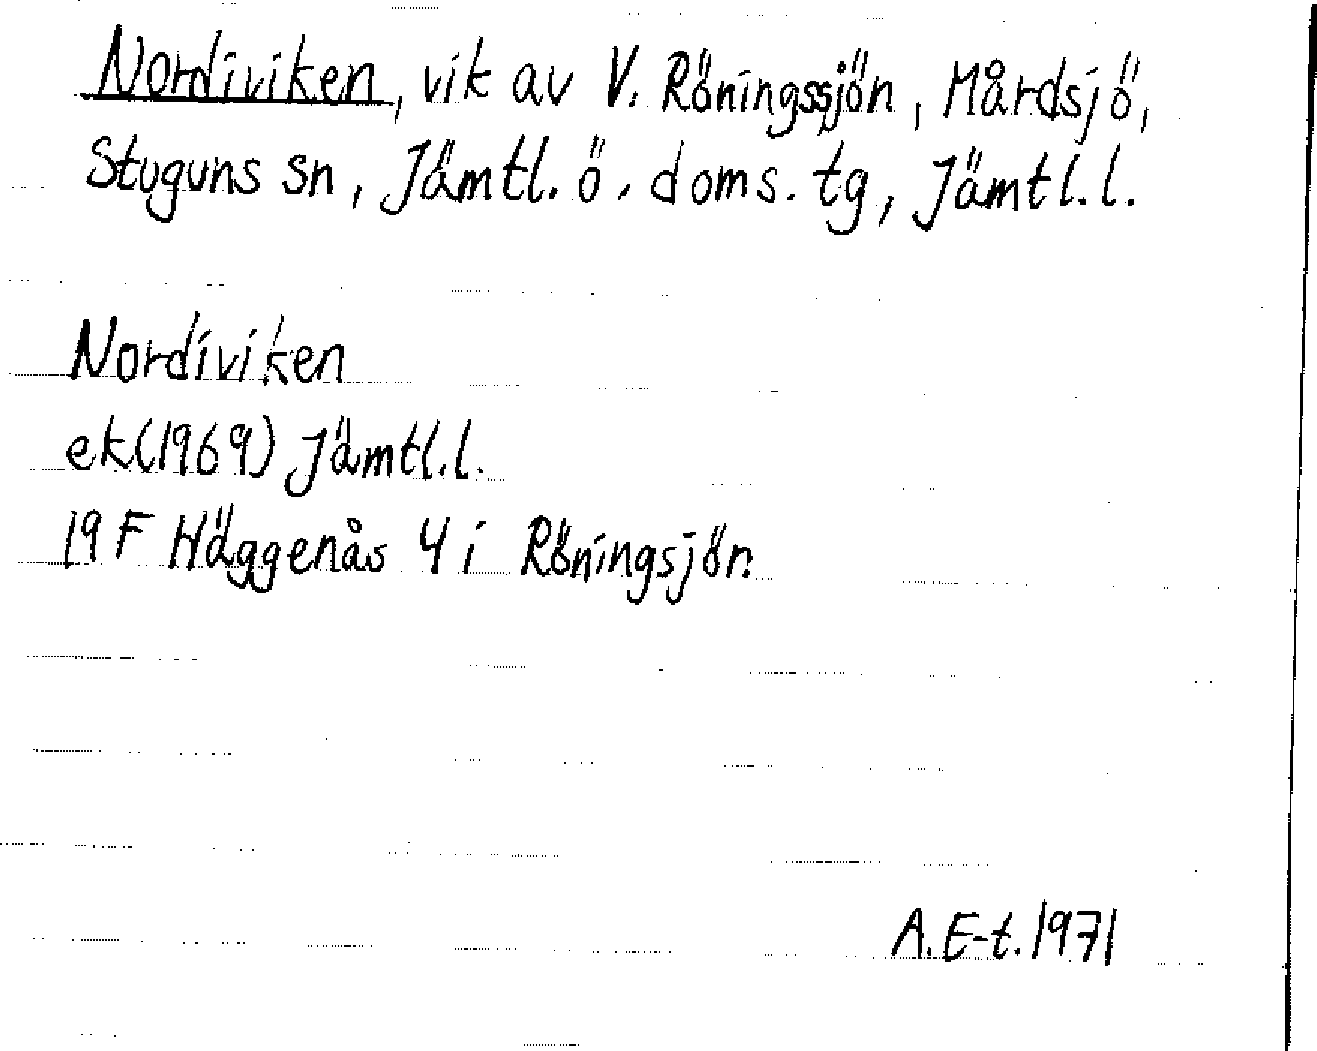 Nordiviken, vik av V. Röningssjön, Mårdsjö,
Stuguns sn, Jämtl. ö. doms. tg, Jämtl. l.
Nordiviken
ek(1969) Jämtl.l.
19 F Häggenås 4 i Röningsjön
A. E-t. 1971